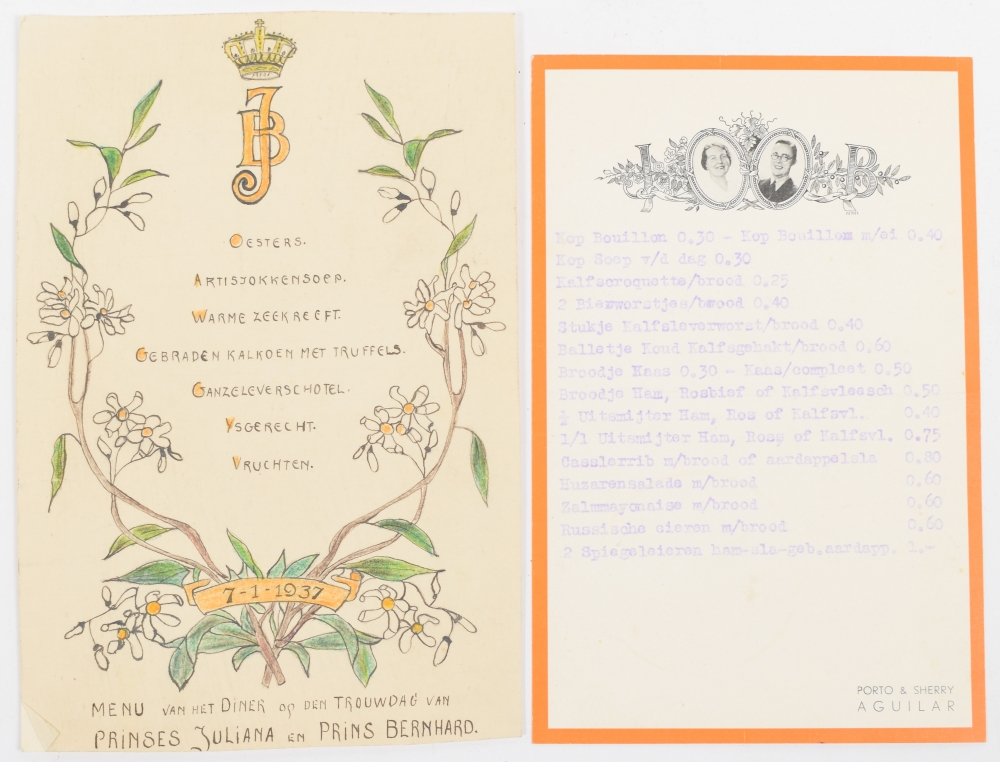 JB
OESTERS.
ARTISJOKKENSOEP.
WARME ZEEKREEFT.
GEBRADEN KALKOEN MET TRUFFELS.
GANZELEVERSCHOTEL.
YSGERECHT.
VRUCHTEN.
7-1-1937
MENU VAN HET DINER OP DEN TROUWDAG VAN
PRINSES JULIANA EN PRINS BERNHARD.
J B
Kop Bouillon 0.30 - Kop Bouillom m/ei 0.40
Kop Soep v/d dag 0.30
Kalfscroquette/brood 0.25
2 Bierworstjes/brood 0.40
Stukje Kalfsleverworst/brood 0.40
Balletje Koud Kalfsgehakt/brood 0.60
Broodje Kaas 0.30 - Kaas/compleet 0.50
Broodje Ham, Rosbief of Kalfsvleesch 0.50
½ Uitsmijter Ham, Ros of Kalfsvl. 0.40
1/1 Uitsmijter Ham, Ross of Kalfsvl. 0.75
Casslerrib m/brood of aardappelsla 0.80
Huzarensalade m/brood 0.60
Zalmmayonaise m/brood 0.60
Russische eieren m/brood 0.60
2 Spiegeleieren ham-sla-geb.aardapp. 1.-
PORTO & SHERRY
AGUILAR